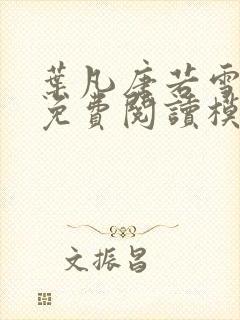 葉凡唐若雪
免費閱讀模
文振昌